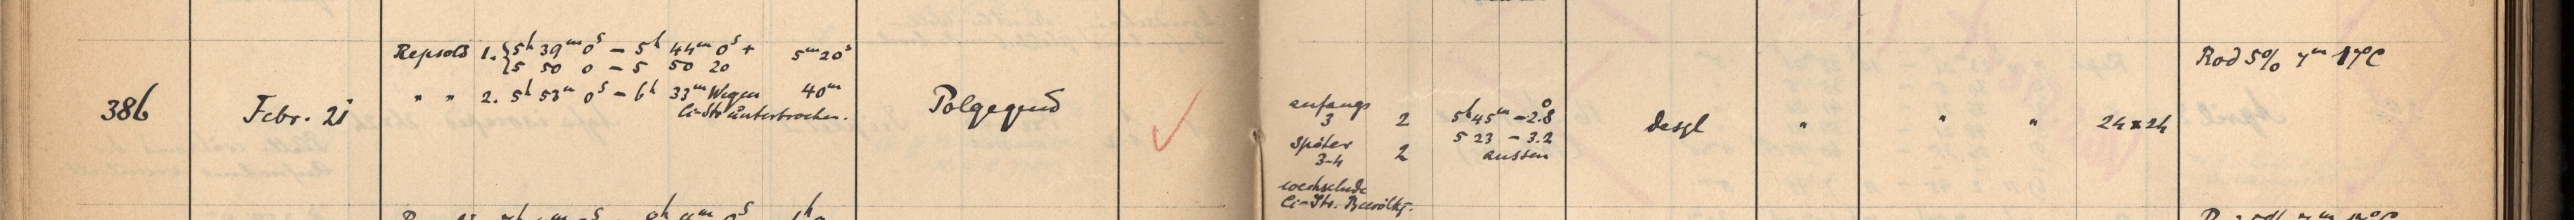 Repsold 1. { 5h 39m 0s - 5h 44m 0s + 5m 20s
5 50 0 - 5 50 20
" " 2. 5h 53m 0s - 6h 33m Wegen 40m
Ci-Str unterbrochen.
386 Febr. 21 Polgegend
anfangs
3 2 5h 45m -2.8°
später 5 23 -3.2
3-4 2 aussen
wechselnde
Ci-Str. Bewölkg.
desgl " " " 24x24
Rod 5% 7m 17°C